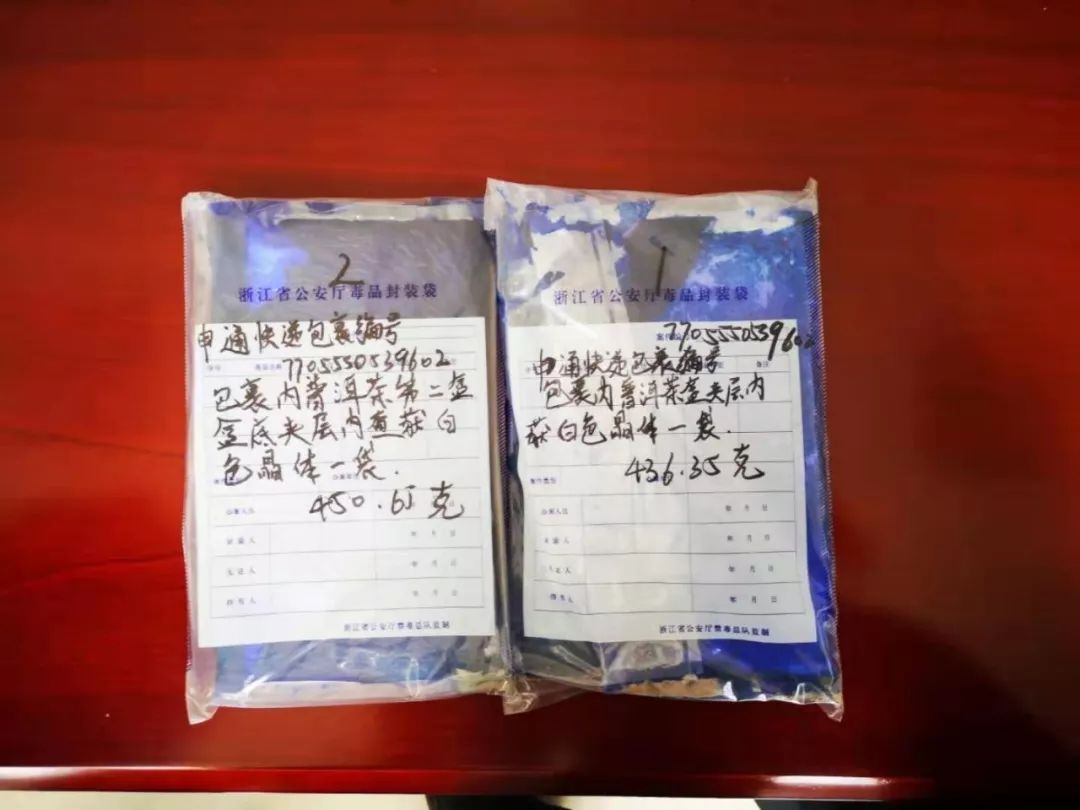 2
浙江省公安厅毒品封装袋
申通快递包裹编号
7705550539602
包裹内普洱茶第二盒
盒底夹层内查获白
色晶体一袋.
450.65克
办案人员
年 月 日
年 月 日
见证人
年 月 日
持有人
年 月 日
浙江省公安厅禁毒总队监制
1
浙江省公安厅毒品封装袋
7705550539602
申通快递包裹编号
包裹内普洱茶盒夹层内
获白色晶体一袋.
436.35克
案件类别
办案人员
年 月 日
年 月 日
见证人
年 月 日
持有人
年 月 日
浙江省公安厅禁毒总队监制